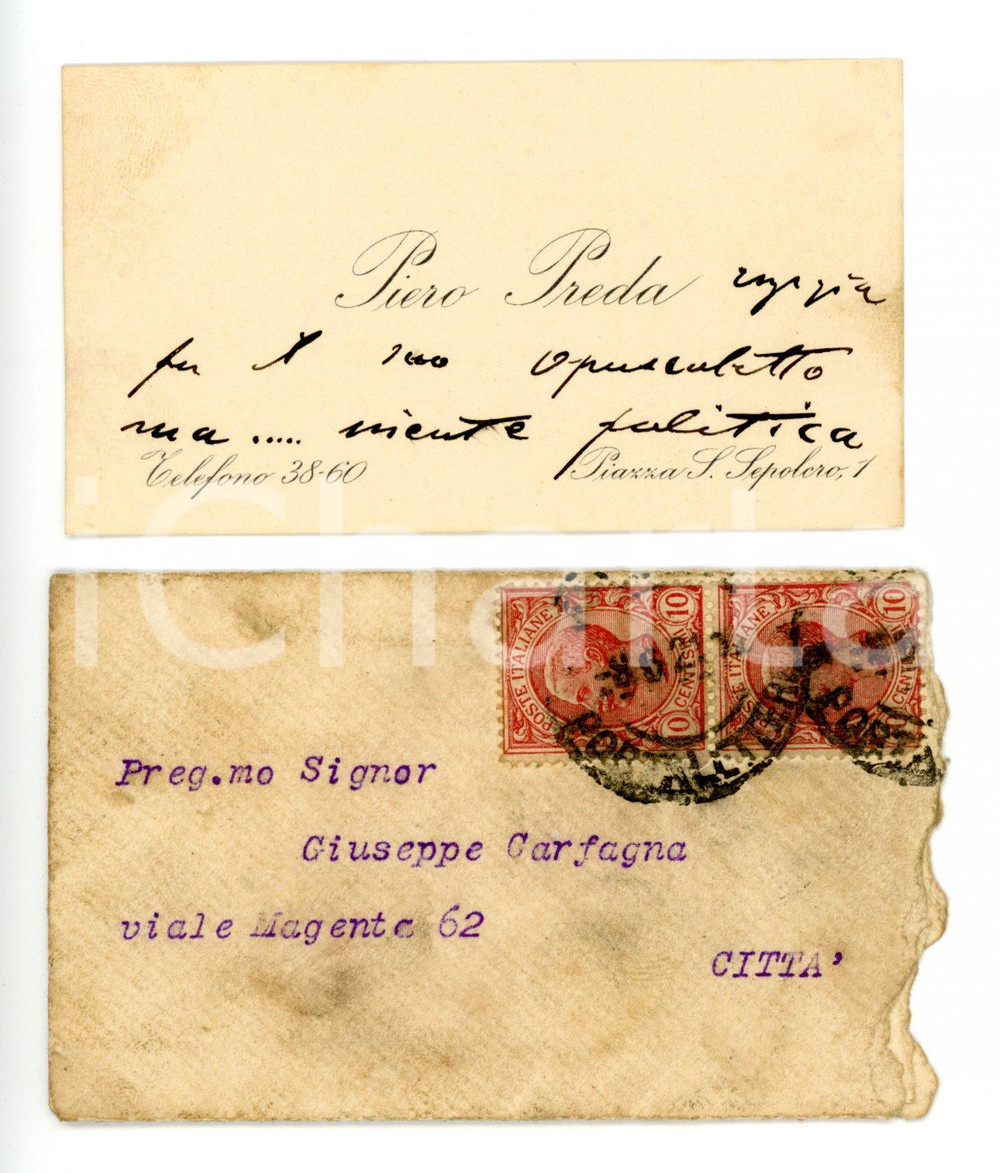 Piero Preda
per il suo opuscoletto
ma ..... niente politica
Telefono 38-60
Piazza S. Sepolcro, 1
iCharta
POSTE ITALIANE
10
CENTESIMI
10
10
CENTESIMI
Preg.mo Signor
Giuseppe Carfagna
viale Magenta 62
CITTA'